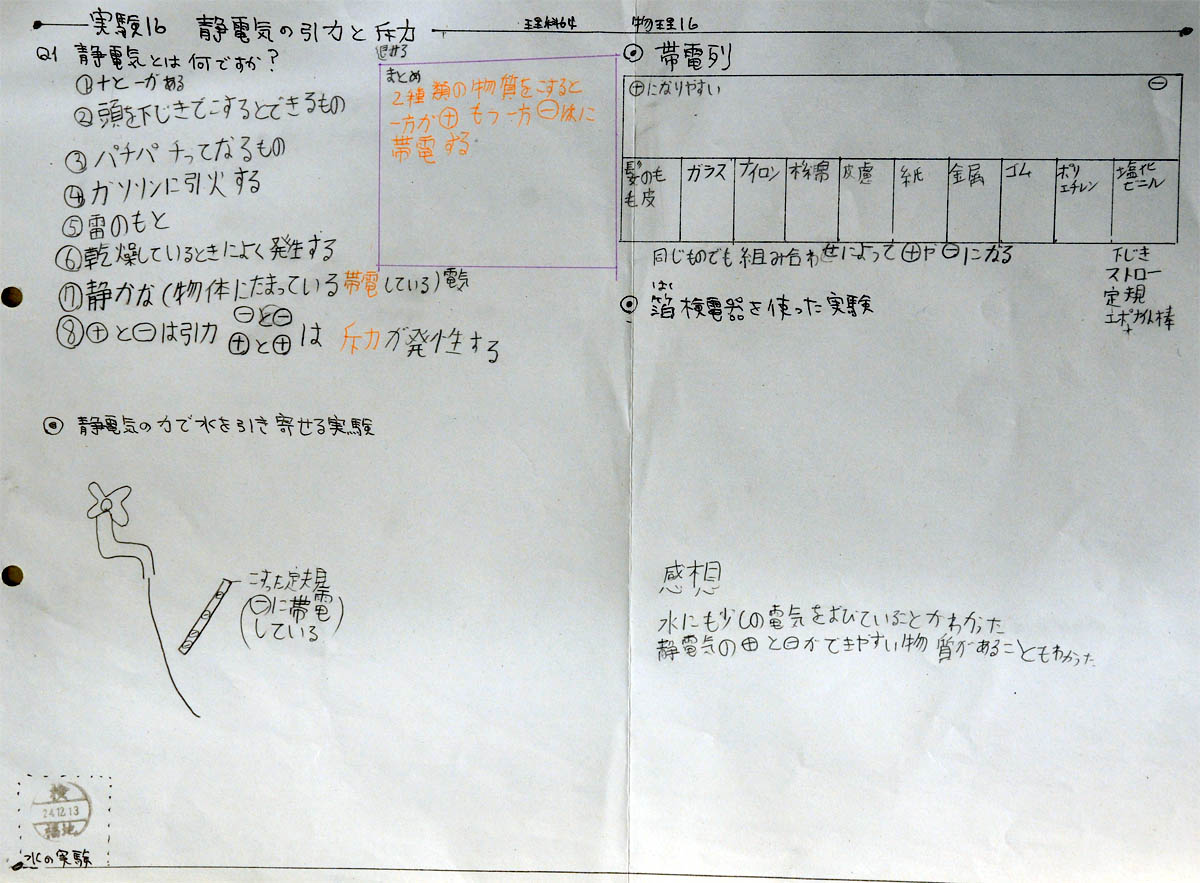 実験16 静電気の引力と斥力
理科64 物理16
Q1 静電気とは何ですか?
①+と−がある
②頭を下じきでこするとできるもの
③パチパチってなるもの
④ガソリンに引火する
⑤雷のもと
⑥乾燥しているときによく発生する
⑦静かな(物体にたまっている帯電している)電気
⑧⊕と⊖は引力 ⊖と⊖ ⊕と⊕ は 斥力が発性する
まとめ
2種類の物質をこすると
一方が⊕ もう一方⊖は体に
帯電する。
◉ 静電気の力で水を引き寄せる実験
こすった定規
(⊖に帯電
している)
検
24.12.13
福地
水の実験
◉ 帯電列
⊕になりやすい ⊖
髪の毛
毛皮
ガラス
ナイロン
木綿
皮膚
紙
金属
ゴム
ポリ
エチレン
塩化
ビニル
同じものでも組み合わせによって⊕や⊖になる
下じき
ストロー
定規
エボナイト棒
+
はく
◉ 箔検電器を使った実験
感想
水にも少しの電気をおびていることがわかった
静電気の⊕と⊖ができやすい物質があることもわかった